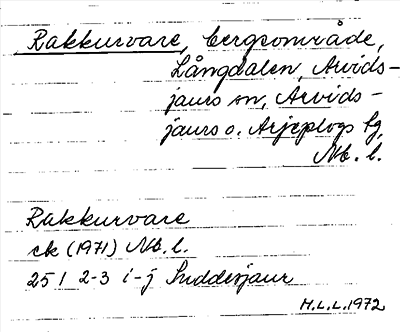 Rakkurvare, bergsområde,
Långdalen, Arvids-
jaurs sn, Arvids-
jaurs o. Arjeplogs tg,
Nb. l.
Rakkurvare
ek (1971) Nb. l.
25 I 2-3 i-j Suddesjaur
H.L.L. 1972